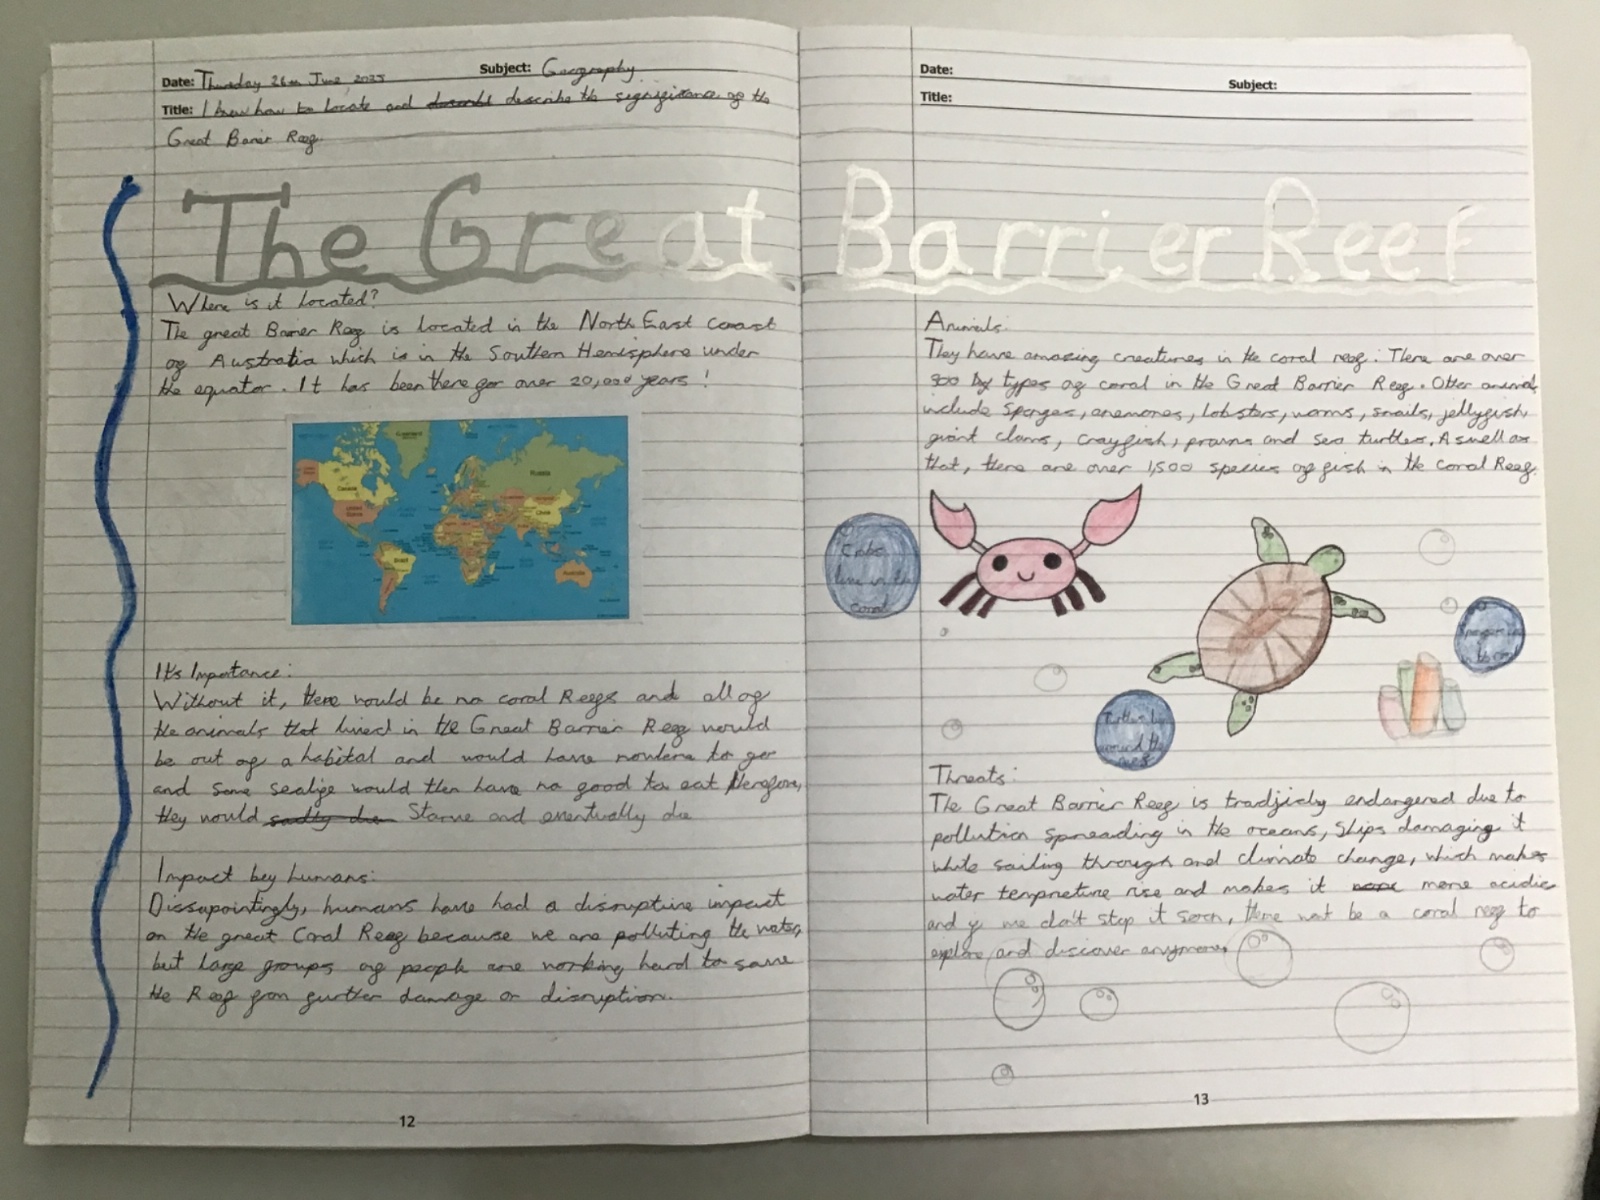 Date: Thursday 26th June 2025 Subject: Geography
Title: I know how to locate and describe the significance of the
Great Barier Reef
The Great
Where is it located?
The great Barrier Reef is located in the North East coast
of Australia which is in the Southern Hemisphere under
the equator. It has been there for over 20,000 years!
Greenland
Russia
Canada
United States
China
Brazil
Australia
It's Importance:
Without it, there would be no coral Reefs and all of
the animals that lived in the Great Barrier Reef would
be out of a habitat and would have nowhere to go
and some sealife would then have no food to eat therefore,
they would sadly die Starve and eventually die
Impact by humans:
Dissapointingly, humans have had a disruptive impact
on the great Coral Reef because we are polluting the water,
but large groups of people are working hard to save
the Reef from further damage or disruption.
12
Date: Subject:
Title:
Barrier Reef
Animals:
They have amazing creatures in the coral reef. There are over
types of coral in the Great Barrier Reef. Other animals
include Sponges, anemones, lobsters, worms, snails, jellyfish,
giant clams, crayfish, prawns and sea turtles. Aswell as
that, there are over 1,500 species of fish in the coral Reef.
Crabs
live in the
coral
in the coral
Turtles
around the
reef
Threats:
The Great Barrier Reef is tradjicly endangered due to
pollution spreading in the oceans, Ships damaging it
while sailing through and climate change, which makes
water tempreture rise and makes it more acidic
and if we don't stop it soon, there wont be a coral reef to
explore and discover anymore.
13